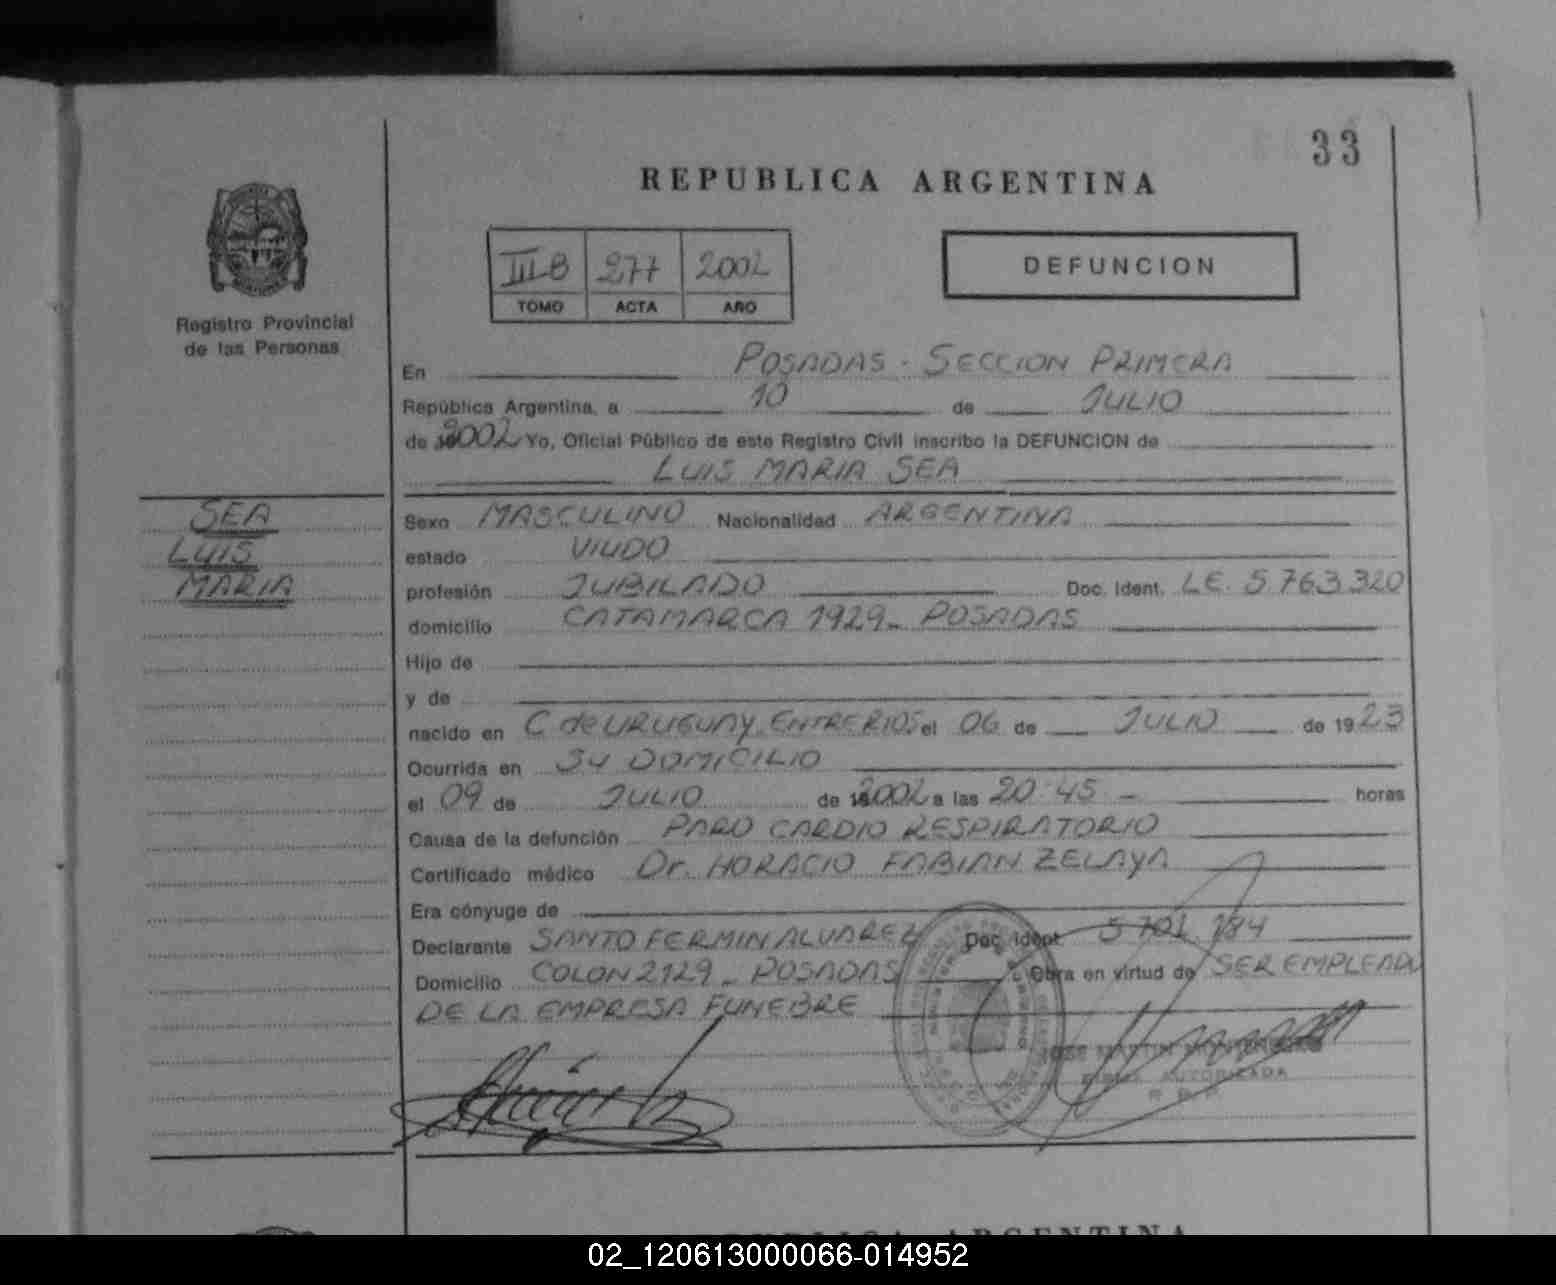 33
REPUBLICA ARGENTINA
III B 277 2002
TOMO ACTA AÑO
DEFUNCION
Registro Provincial
de las Personas
En POSADAS - SECCION PRIMERA
República Argentina, a 10 de JULIO
de 2002 Yo, Oficial Público de este Registro Civil inscribo la DEFUNCION de
LUIS MARIA SEA
SEA
LUIS
MARIA
Sexo MASCULINO Nacionalidad ARGENTINA
estado VIUDO
profesión JUBILADO Doc. Ident. LE. 5.763.320
domicilio CATAMARCA 1929 - POSADAS
Hijo de
y de
nacido en C de URUGUAY. ENTRE RIOS el 06 de JULIO de 1923
Ocurrida en SU DOMICILIO
el 09 de JULIO de 2002 a las 20:45 - horas
Causa de la defunción PARO CARDIO RESPIRATORIO
Certificado médico Dr. HORACIO FABIAN ZELAYA
Era cónyuge de
Declarante SANTO FERMIN ALVAREZ Doc. Ident. 5.701.184
Domicilio COLON 2129 - POSADAS Obra en virtud de SER EMPLEADO
DE LA EMPRESA FUNEBRE
JOSE MARTIN
FIRMA AUTORIZADA
REPUBLICA ARGENTINA
02_120613000066-014952